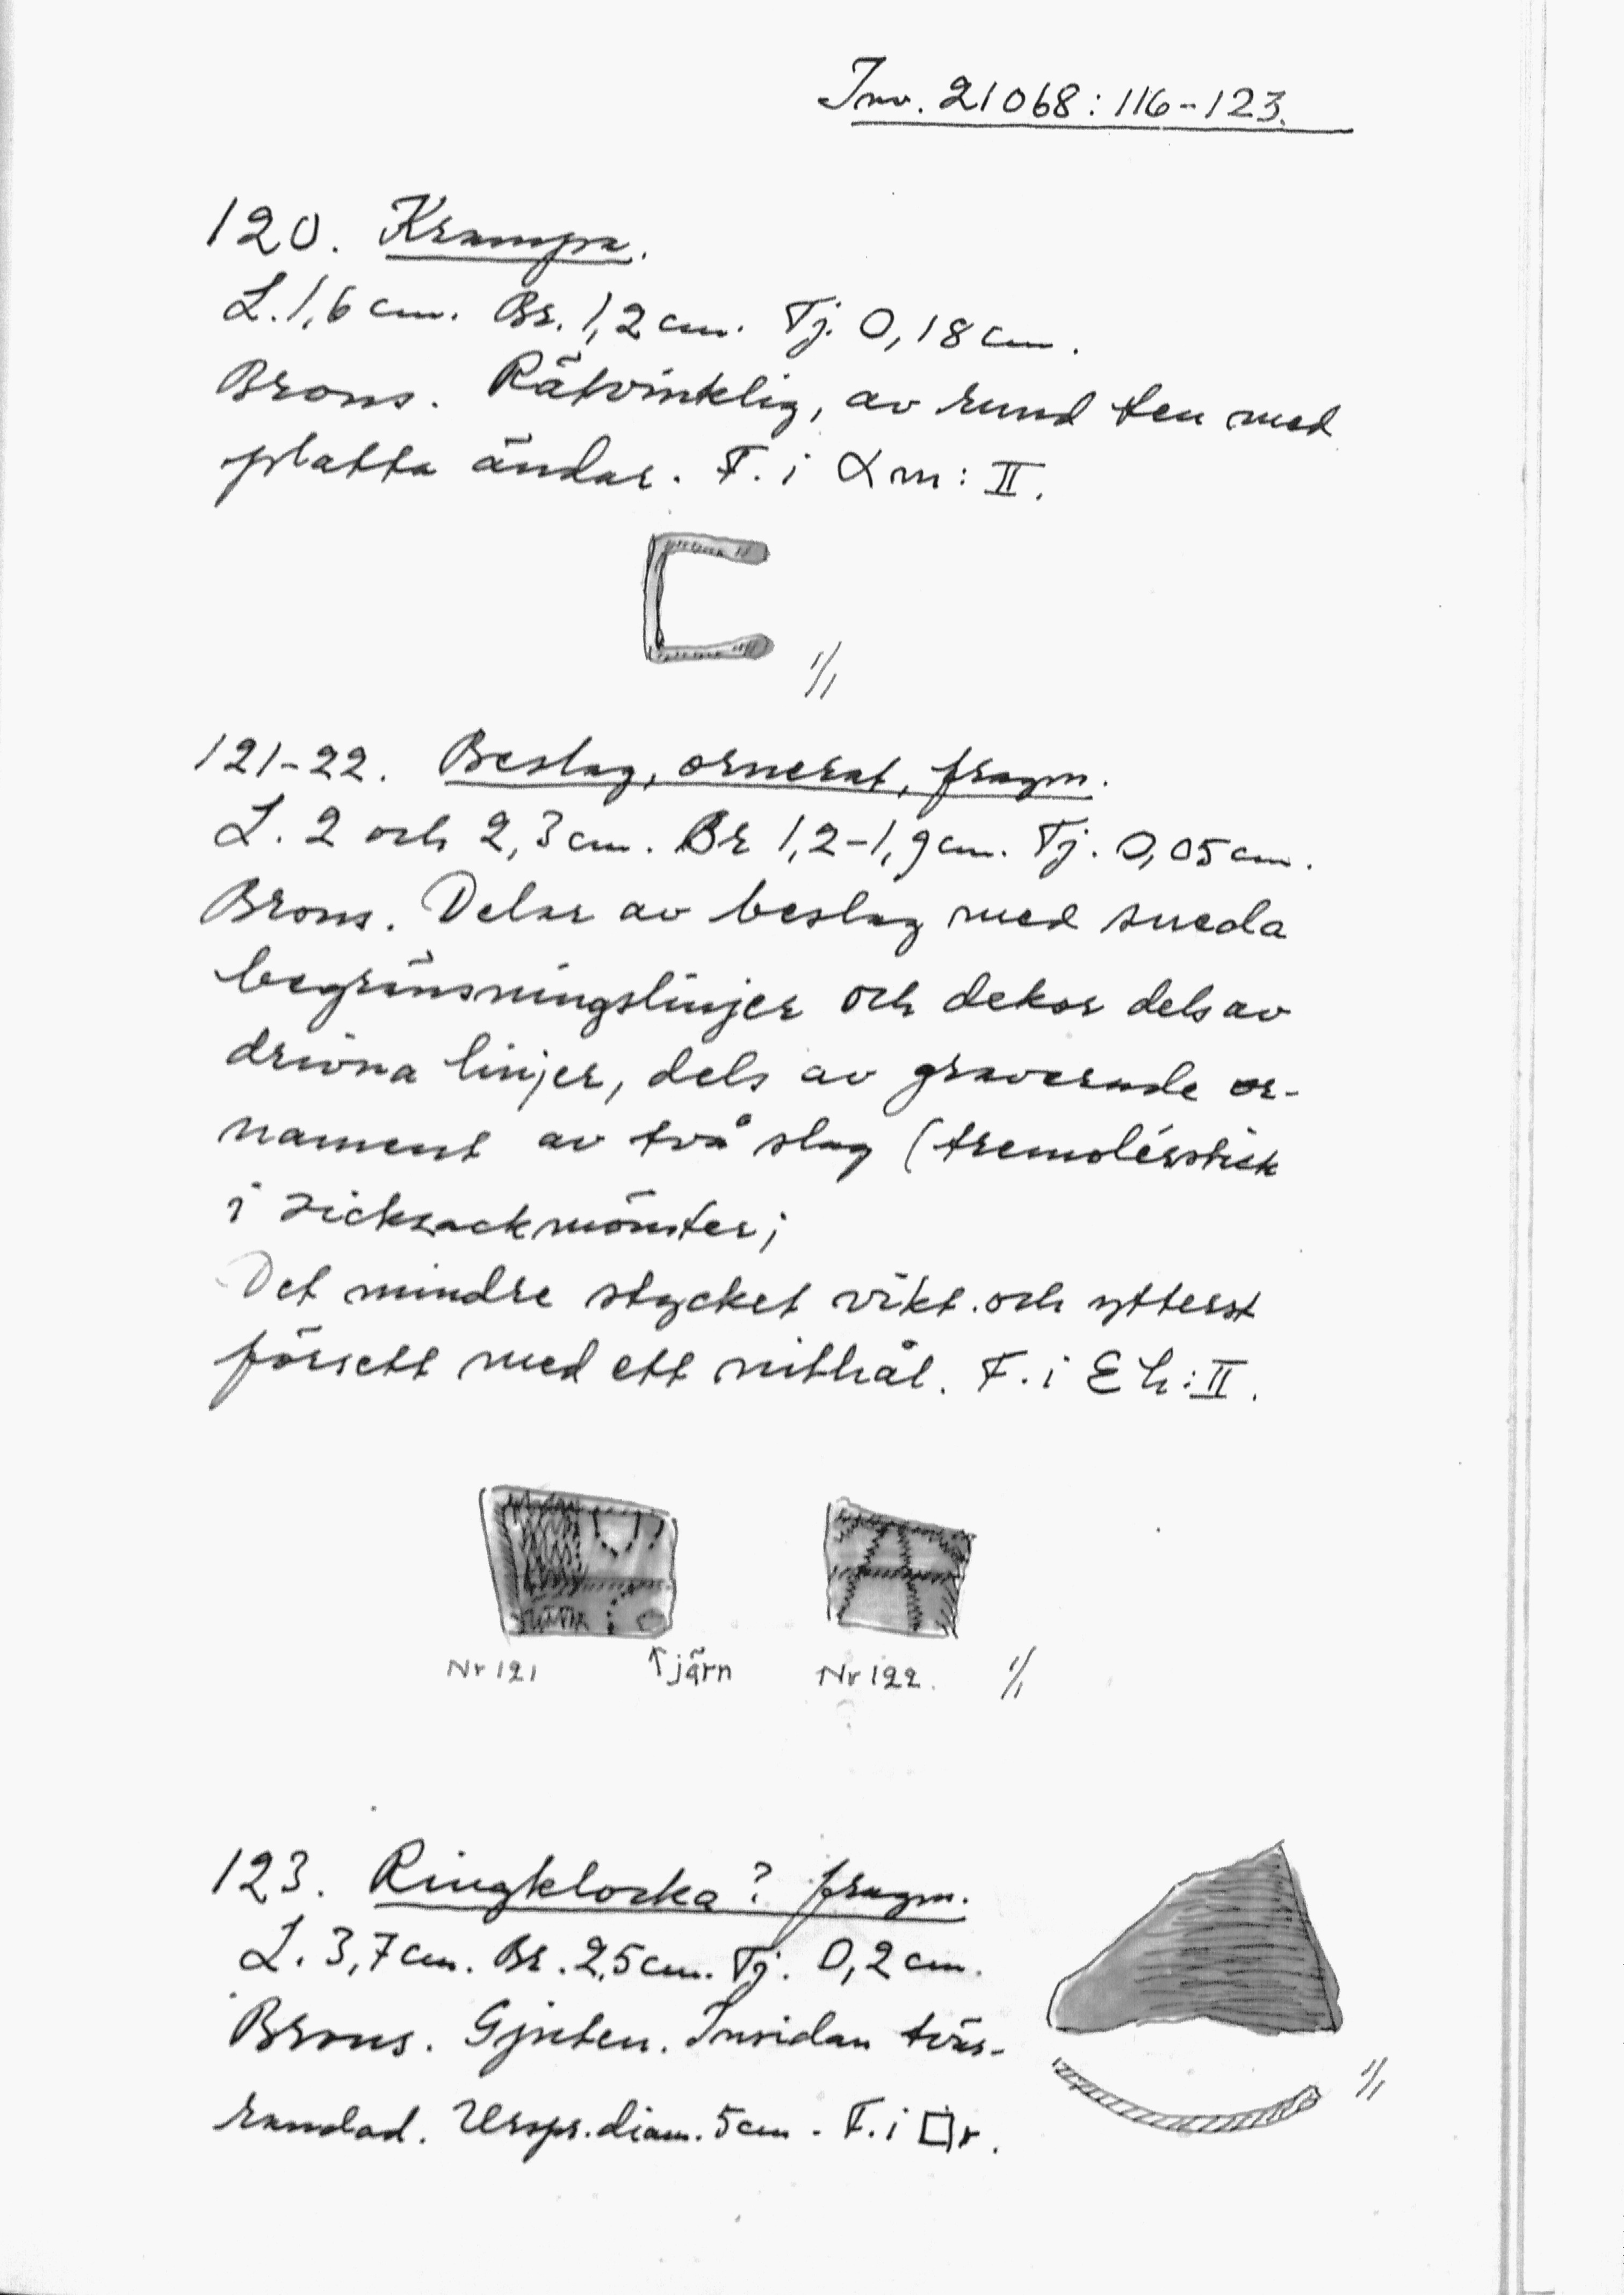 Inv. 21068:116-123.
120. Krampa.
L. 1,6 cm. Br. 1,2 cm. Tj. 0,18 cm.
Brons. Rätvinklig, av rund ten med
platta ändar. F. i αm: II.
1/1
121-22. Beslag, ornerat, fragm.
L. 2 och 2,3 cm. Br 1,2-1,9 cm. Tj. 0,05 cm.
Brons. Delar av beslag med sneda
begränsningslinjer och dekor dels av
drivna linjer, dels av graverade or-
nament av två slag (tremolérstick
i sicksackmönster;
Det mindre stycket vikt och ytterst
försett med ett nithål. F. i Eh: II.
Nr 121 ↑järn Nr 122. 1/1
123. Ringklocka? fragm.
L. 3,7 cm. Br. 2,5 cm. Tj. 0,2 cm.
Brons. Gjuten. Insidan tvär-
randad. Urspr. diam. 5 cm. F. i □r.
1/1